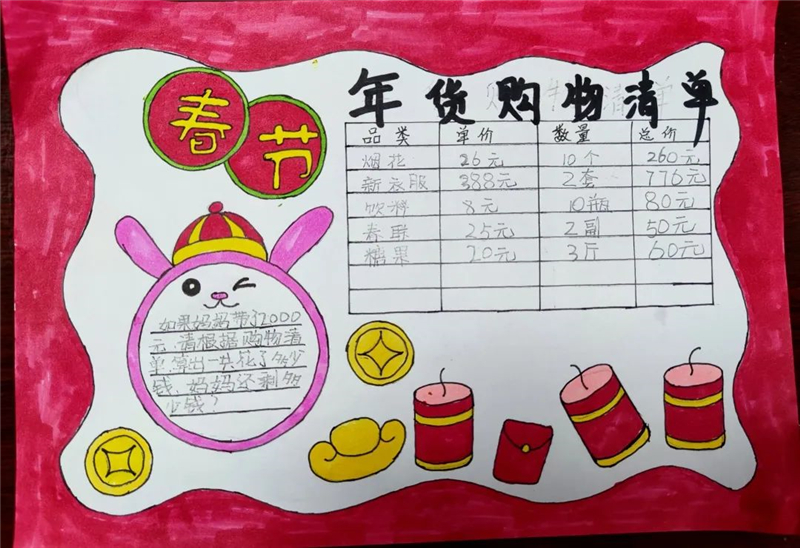 春节
年货购物清单
品类 单价 数量 总价
烟花 26元 10个 260元
新衣服 388元 2套 776元
饮料 8元 10瓶 80元
春联 25元 2副 50元
糖果 20元 3斤 60元
如果妈妈带了2000
元,请根据购物清
单,算出一共花了多少
钱,妈妈还剩多
少钱?